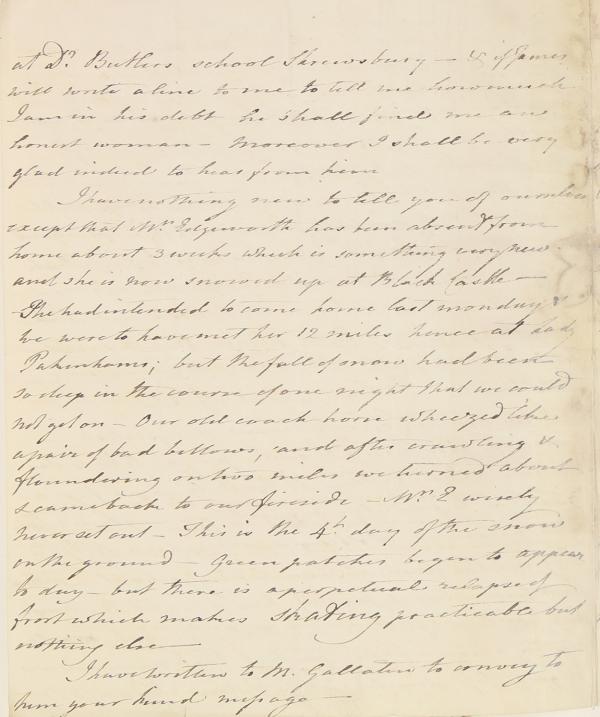 at Dr. Butlers school Shrewsbury — & if James
will write a line to me to tell me how much
I am in his debt he shall find me an
honest woman — Moreover I shall be very
glad indeed to hear from him
I have nothing new to tell you of ourselves
except that Mrs. Edgeworth has been absent from
home about 3 weeks which is something very new
and she is now snowed up at Black Castle —
She had intended to come home last monday &
we were to have met her 12 miles hence at Lady
Pakenhams; but the fall of snow had been
so deep in the course of one night that we could
not get on — Our old coach horse wheezed like
a pair of bad bellows, and after crawling &
floundering on two miles we turned about
& came back to our fireside — Mrs. E wisely
never set out — This is the 4th day of the snow
on the ground — Green patches began to appear
to day — but there is a perpetual relapse of
frost which makes skating practicable but
nothing else —
I have written to M. Gallatin to convey to
him your kind message —